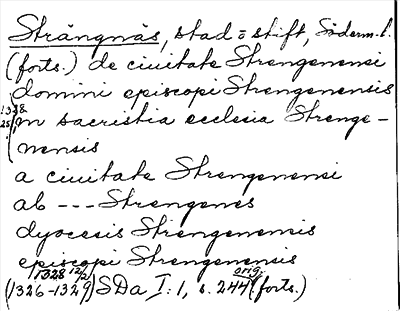 Strängnäs, stad o stift, Söderm. l.
(forts.) de ciuitate Strengenensi
domini episcopi Strengenensis
1328
25/1 in sacristia ecclesia Strenge-
nensis
a ciuitate Strengenensi
ab --- Strengenes
dyocesis Strengenensis
episcopi Strengenensis
1328 12/2 orig.
(1326-1329) SDa I:1, s. 244 (forts.)